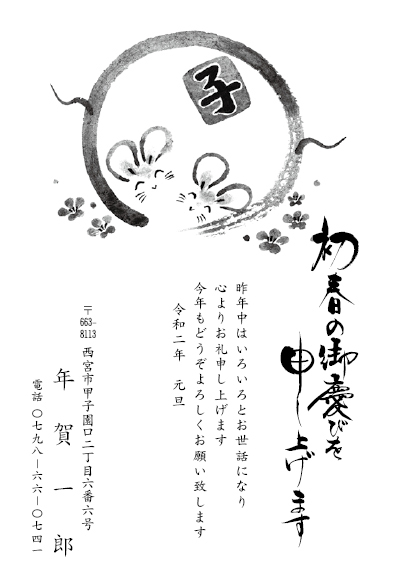 子
初春の御慶びを
申し上げます
昨年中はいろいろとお世話になり
心よりお礼申し上げます
今年もどうぞよろしくお願い致します
令和二年　元旦
〒663-8113　西宮市甲子園口二丁目六番六号
年賀一郎
電話　〇七九八―六六―〇七四一